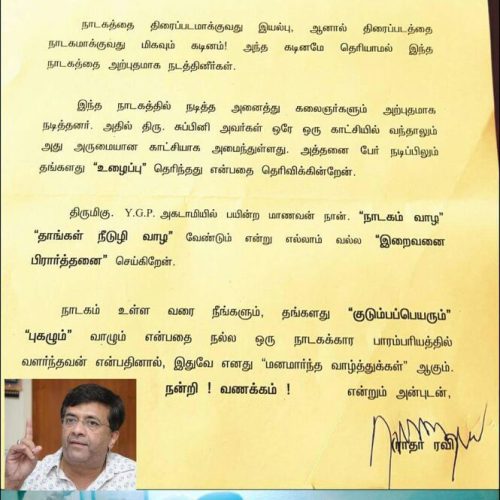 நாடகத்தை திரைப்படமாக்குவது இயல்பு, ஆனால் திரைப்படத்தை
நாடகமாக்குவது மிகவும் கடினம்! அந்த கடினமே தெரியாமல் இந்த
நாடகத்தை அற்புதமாக நடத்தினீர்கள்.
இந்த நாடகத்தில் நடித்த அனைத்து கலைஞர்களும் அற்புதமாக
நடித்தனர். அதில் திரு. சுப்பினி அவர்கள் ஒரே ஒரு காட்சியில் வந்தாலும்
அது அருமையான காட்சியாக அமைந்துள்ளது. அத்தனை பேர் நடிப்பிலும்
தங்களது "உழைப்பு" தெரிந்தது என்பதை தெரிவிக்கின்றேன்.
திருமிகு. Y.G.P. அகடாமியில் பயின்ற மாணவன் நான். "நாடகம் வாழ"
"தாங்கள் நீடுழி வாழ" வேண்டும் என்று எல்லாம் வல்ல "இறைவனை
பிரார்த்தனை" செய்கிறேன்.
நாடகம் உள்ள வரை நீங்களும், தங்களது "குடும்பப்பெயரும்"
"புகழும்" வாழும் என்பதை நல்ல ஒரு நாடகக்கார பாரம்பரியத்தில்
வளர்ந்தவன் என்பதினால், இதுவே எனது "மனமார்ந்த வாழ்த்துக்கள்" ஆகும்.
நன்றி ! வணக்கம் ! என்றும் அன்புடன்,
(ராதா ரவி)